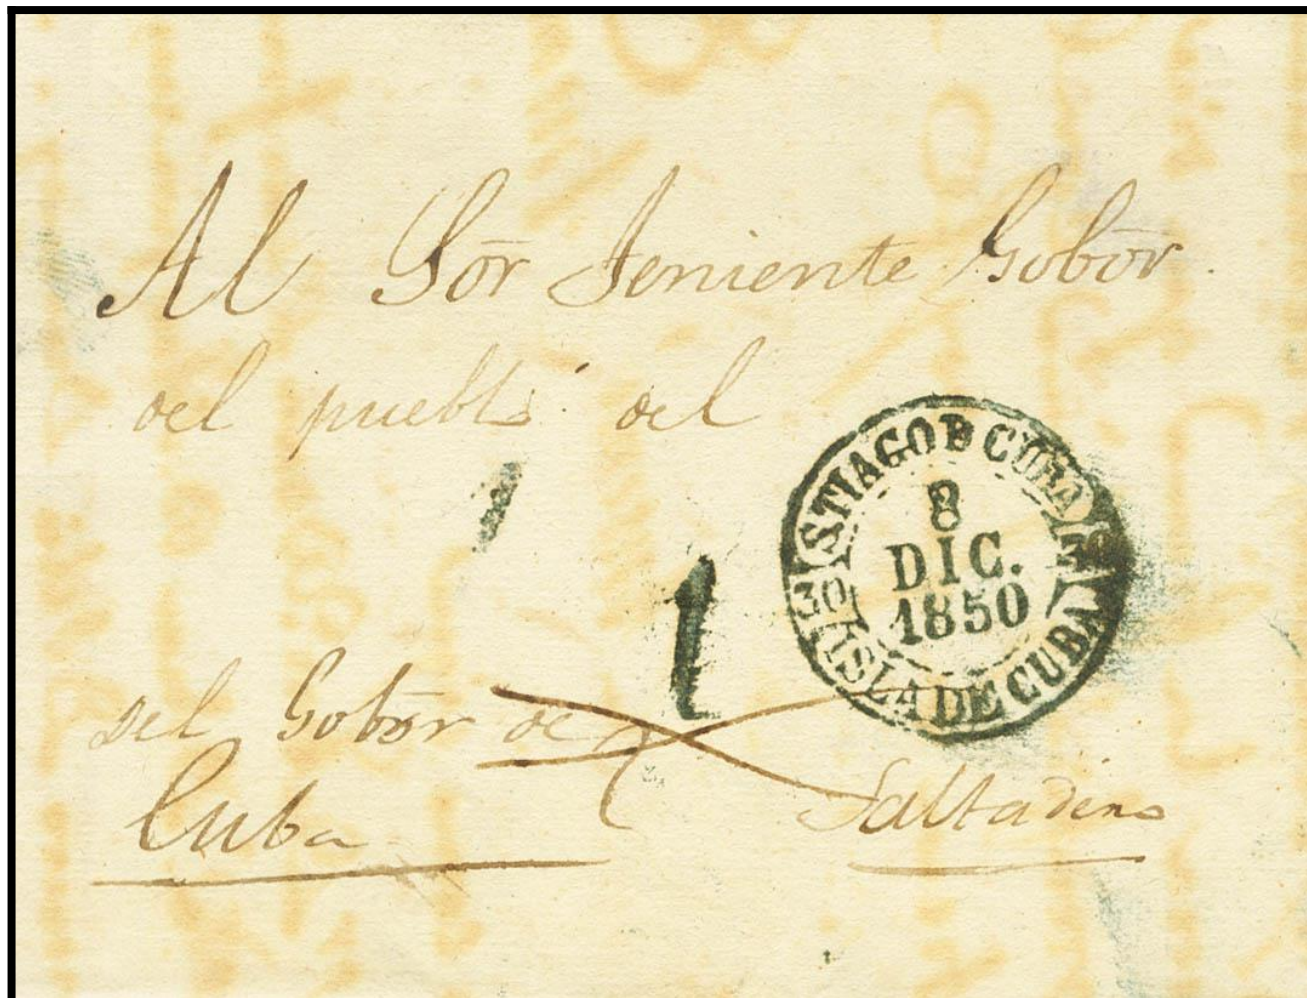 Al Sōr Teniente Gobōr
del pueblo del
S.TIAGO D CUBA
8
DIC.
1850
30
30
ISLA DE CUBA
1
del Gobōr de
Cuba